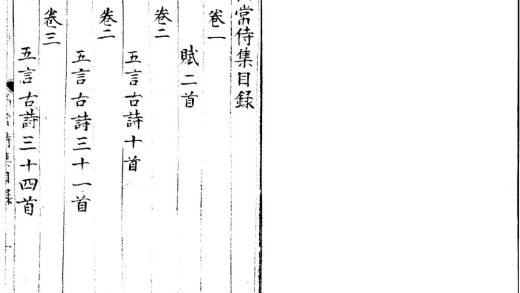 常侍集目録
卷一
賦二首
卷二
五言古詩十首
卷二
五言古詩三十一首
卷三
五言古詩三十四首